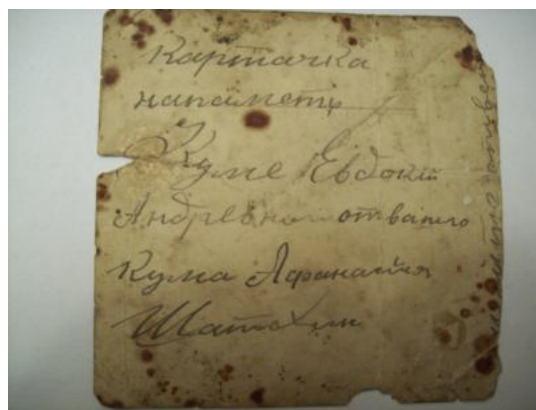 Карточка
напаметь
Куме Евдокии
Андревной от вашего
Кума Афанасия
Шатохин